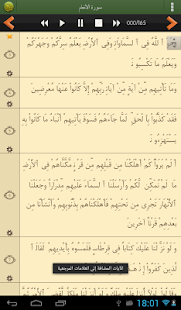 سورة الأنعام
000/165
ٱللَّهُ فِي ٱلسَّمَاوَاتِ وَفِي ٱلْأَرْضِ يَعْلَمُ سِرَّكُمْ وَجَهْرَكُمْ
وَيَعْلَمُ مَا تَكْسِبُونَ
وَمَا تَأْتِيهِم مِّنْ آيَةٍ مِّنْ آيَاتِ رَبِّهِمْ إِلَّا كَانُوا عَنْهَا مُعْرِضِينَ
فَقَدْ كَذَّبُوا بِٱلْحَقِّ لَمَّا جَاءَهُمْ فَسَوْفَ يَأْتِيهِمْ أَنبَاءُ مَا كَانُوا بِهِ
يَسْتَهْزِئُونَ
أَلَمْ يَرَوْا كَمْ أَهْلَكْنَا مِن قَبْلِهِم مِّن قَرْنٍ مَّكَّنَّاهُمْ فِي ٱلْأَرْضِ
مَا لَمْ نُمَكِّن لَّكُمْ وَأَرْسَلْنَا ٱلسَّمَاءَ عَلَيْهِم مِّدْرَارًا وَجَعَلْنَا
ٱلْأَنْهَارَ تَجْرِي مِن تَحْتِهِمْ فَأَهْلَكْنَاهُم بِذُنُوبِهِمْ وَأَنشَأْنَا مِن
بَعْدِهِمْ قَرْنًا آخَرِينَ
وَلَوْ نَزَّلْنَا عَلَيْكَ كِتَابًا فِي قِرْطَاسٍ فَلَمَسُوهُ بِأَيْدِيهِمْ لَقَالَ
ٱلَّذِينَ كَفَرُوا
الآيات المضافة إلى العلامات المرجعية
18:01